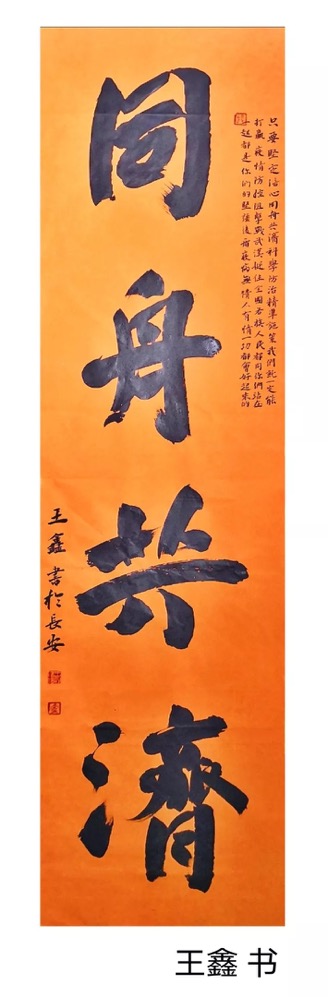 同舟共濟
只要堅定信心同舟共濟科學防治精準施策我們就一定能
打贏疫情防控阻擊戰武漢挺住全國各族人民都同你們站在
一起都是你們的堅強後盾疫病無情人有情一切都會好起來的
王鑫書於長安
王鑫 书